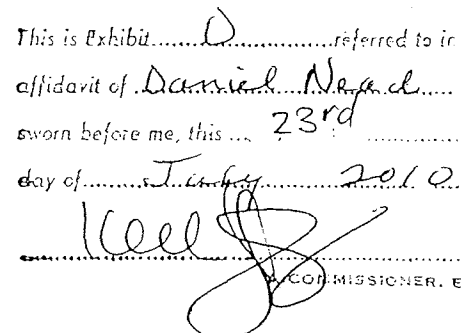 This is Exhibit.....D.....referred to in
affidavit of Daniel Nead
sworn before me, this ... 23rd
day of.......July 2010
A COMMISSIONER. E